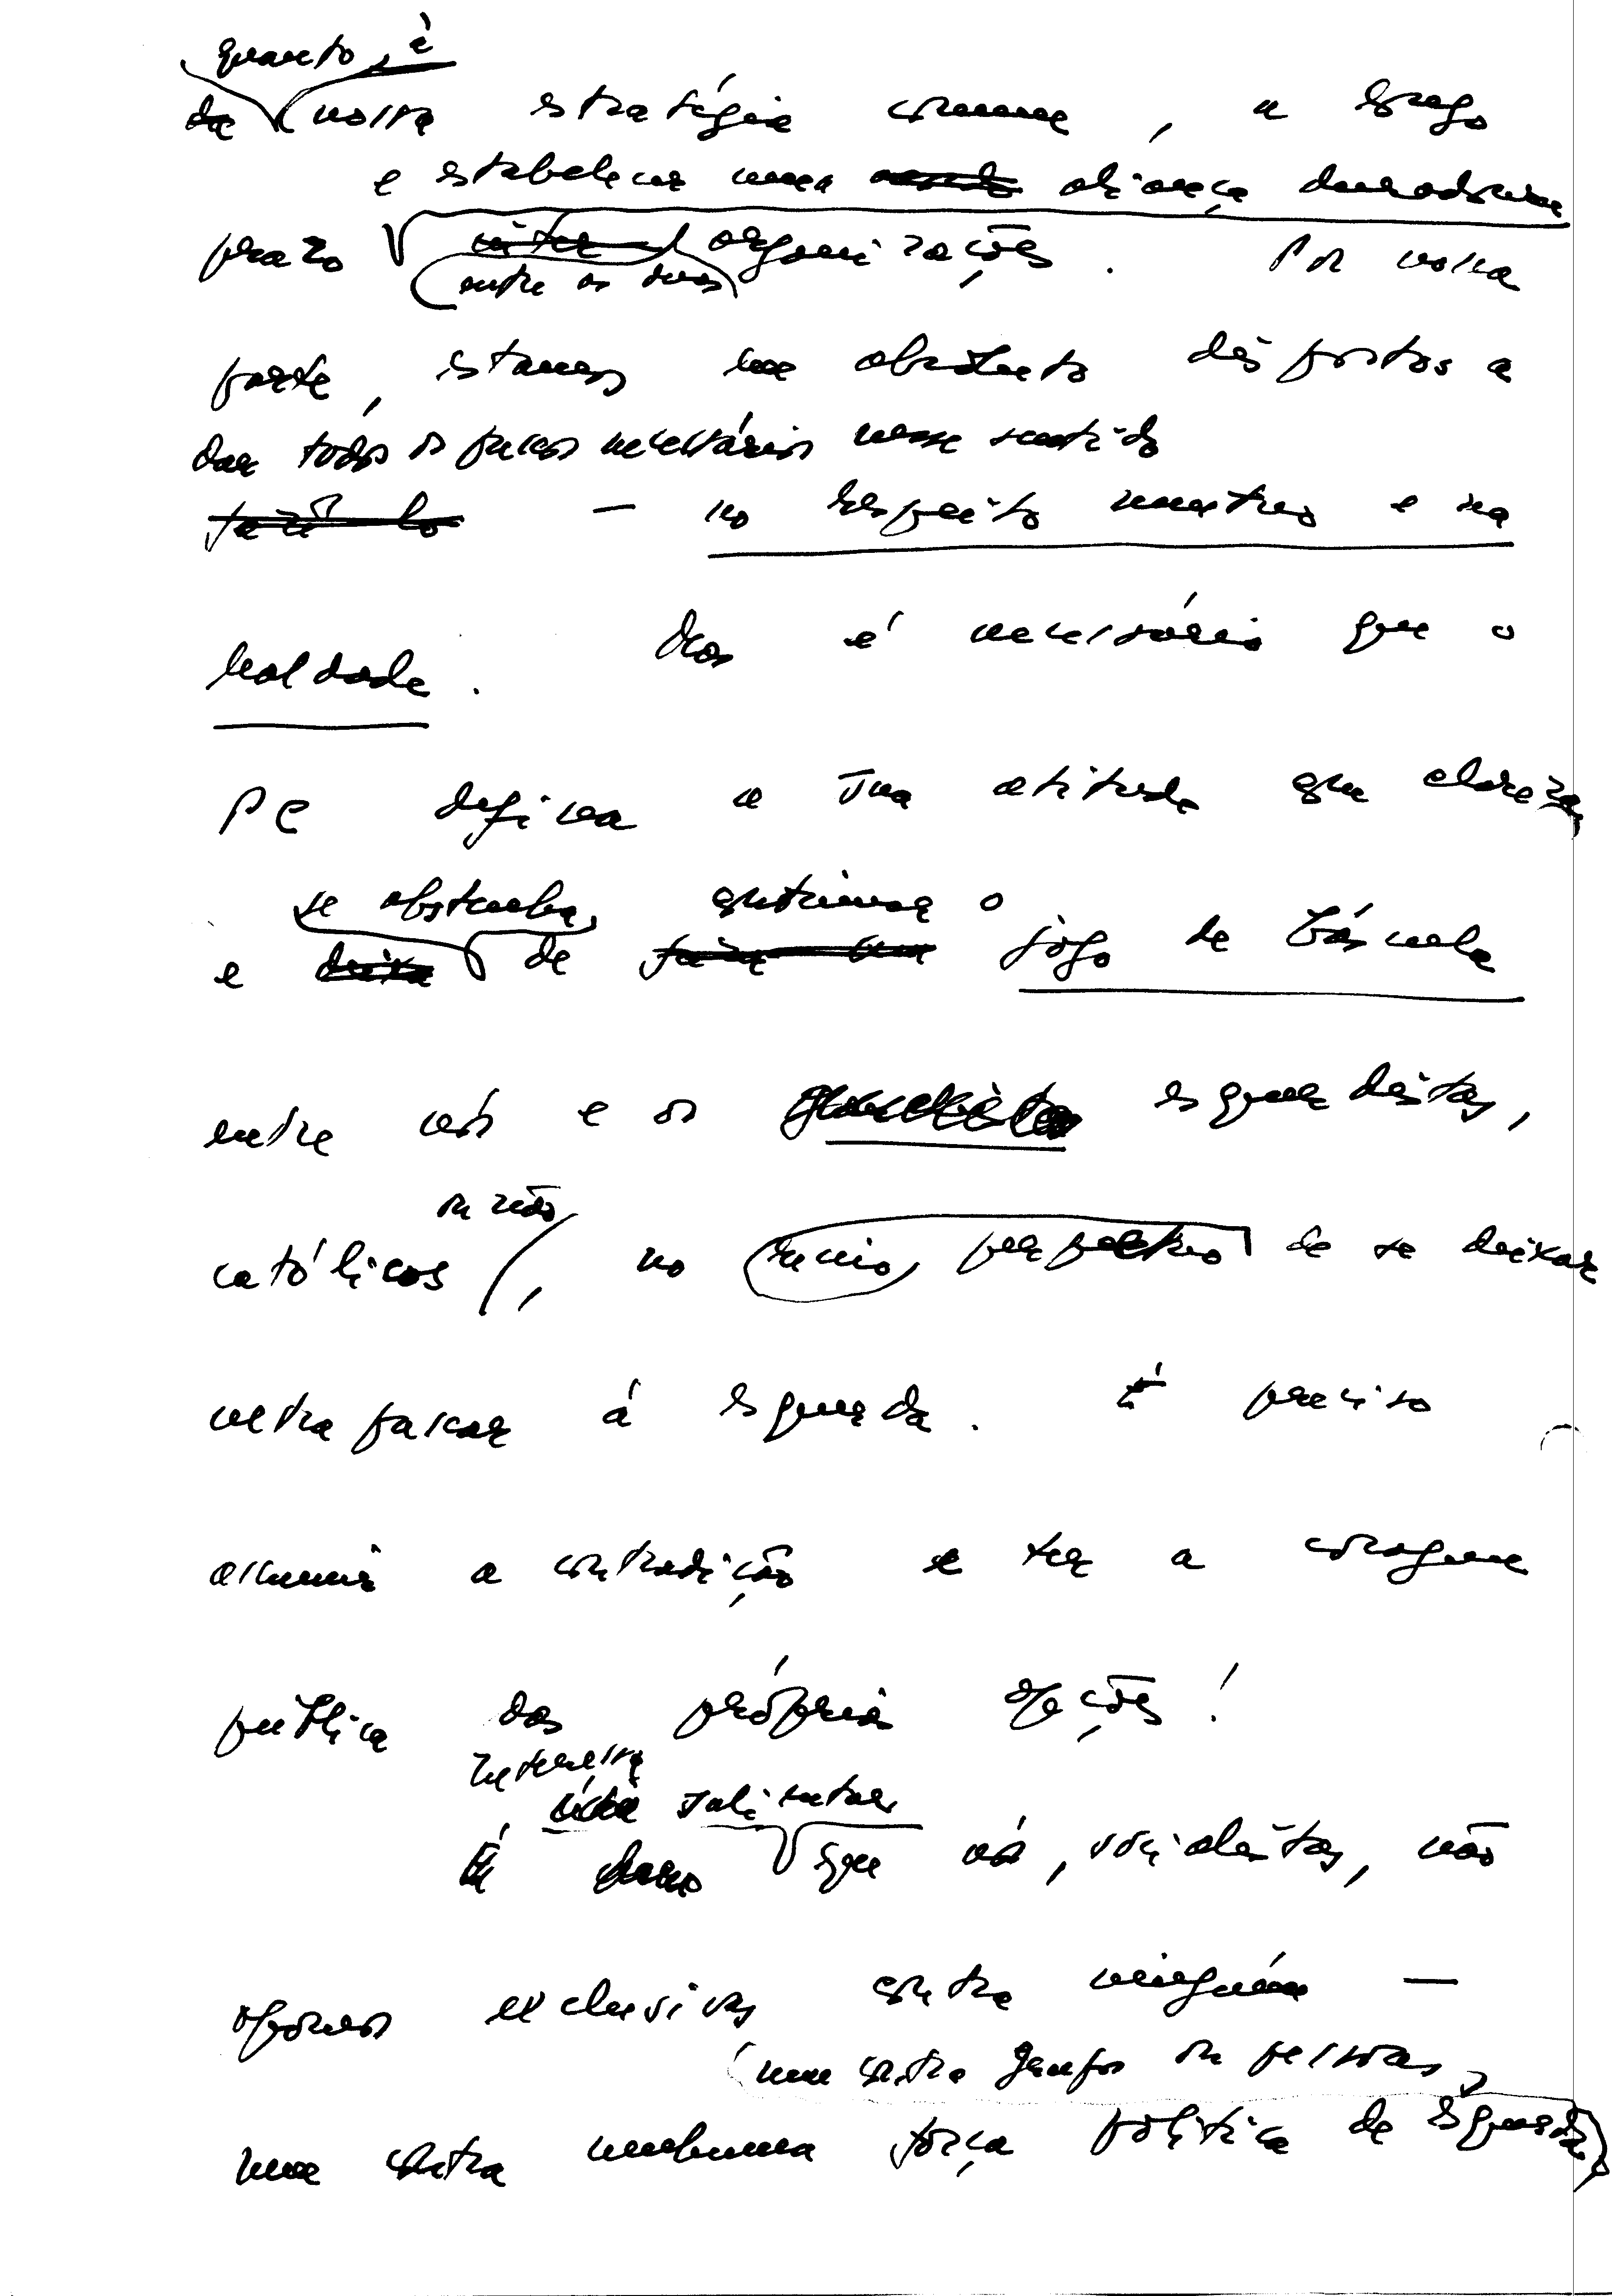 quanto, à
da nossa estratégia comum, a longo
e estabelecer uma aliança duradoura
prazo inter organizações. Por nossa
entre as duas
parte, estamos em absoluto dispostos a
dar todos os passos necessários nesse sentido
fazê-lo — no respeito mútuo e na
lealdade. Mas é necessário que o
PC defina a sua atitude com clareza,
se abstenha, continuar o
e deixe de fazer um jogo de báscula
entre nós e os esquerdistas,
ou não
católicos, no receio, perpétuo de se deixar
ultrapassar à esquerda. É preciso
assumir a contradição e ter a coragem
pública das próprias opções!
Interessa
salientar
É claro que nós, socialistas, não
opomos exclusivas contra ninguém —
nem contra grupos ou pessoas,
nem contra nenhuma força política de esquerda,